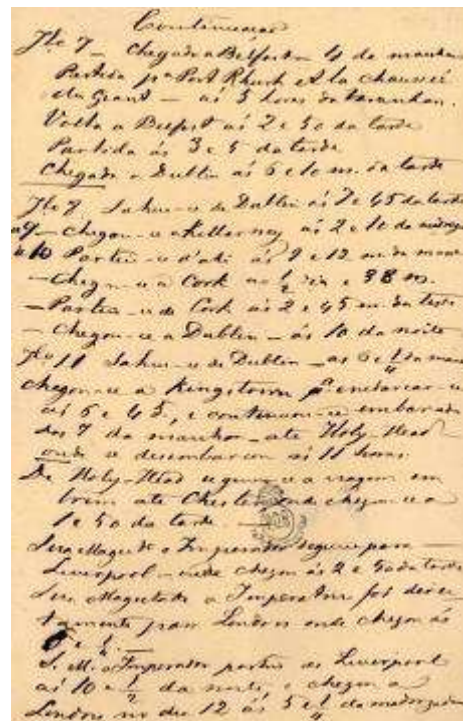 Continuação
Jlo 7 – Chegada a Belfort – 4 da manhan
Partida pa Port Rhush et la chaussée
du Géant – ás 5 horas da manhan.
Volta a Belfort ás 2 e 50 da tarde
Partida ás 3 e 5 da tarde
Chegada a Dublin ás 6 e 10 m. da tarde
Jlo 8 Sahiu-se de Dublin ás 7 e 45 da tarde
a 9 – Chegou-se a Killarney ás 2 e 10 da
a 10 Partiu-se d'ahi ás 9 e 12 m. da manh
– Chegou-se a Cork ao ½ dia e 38 m.
– Partiu-se de Cork ás 2 e 45 m. da tarde
– Chegou-se a Dublin – ás 10 da noite
Jlo 11 Sahiu-se de Dublin – as 6 e ¼ da man
Chegou-se a Kingstown pa embarcar-se
ás 6 e 45, e continuou-se embarcado
das 7 da manhan – até Holy-Head
onde se desembarcou ás 11 horas.
De Holy-Head seguiu-se a viagem em
trem até Chester onde chegou-se a
1 e 50 da tarde –
Sua Magde o Imperador seguiu para
Liverpool – onde chegou ás 2 e 50 da tarde
Sua Magestade a Imperatriz foi dere
tamente para Londres onde chegou ás
S. M. o Imperador partiu de Liverpool
ás 10 e ½ da noite, e chegou a
Londres no dia 12 ás 5 e ½ da madrugada